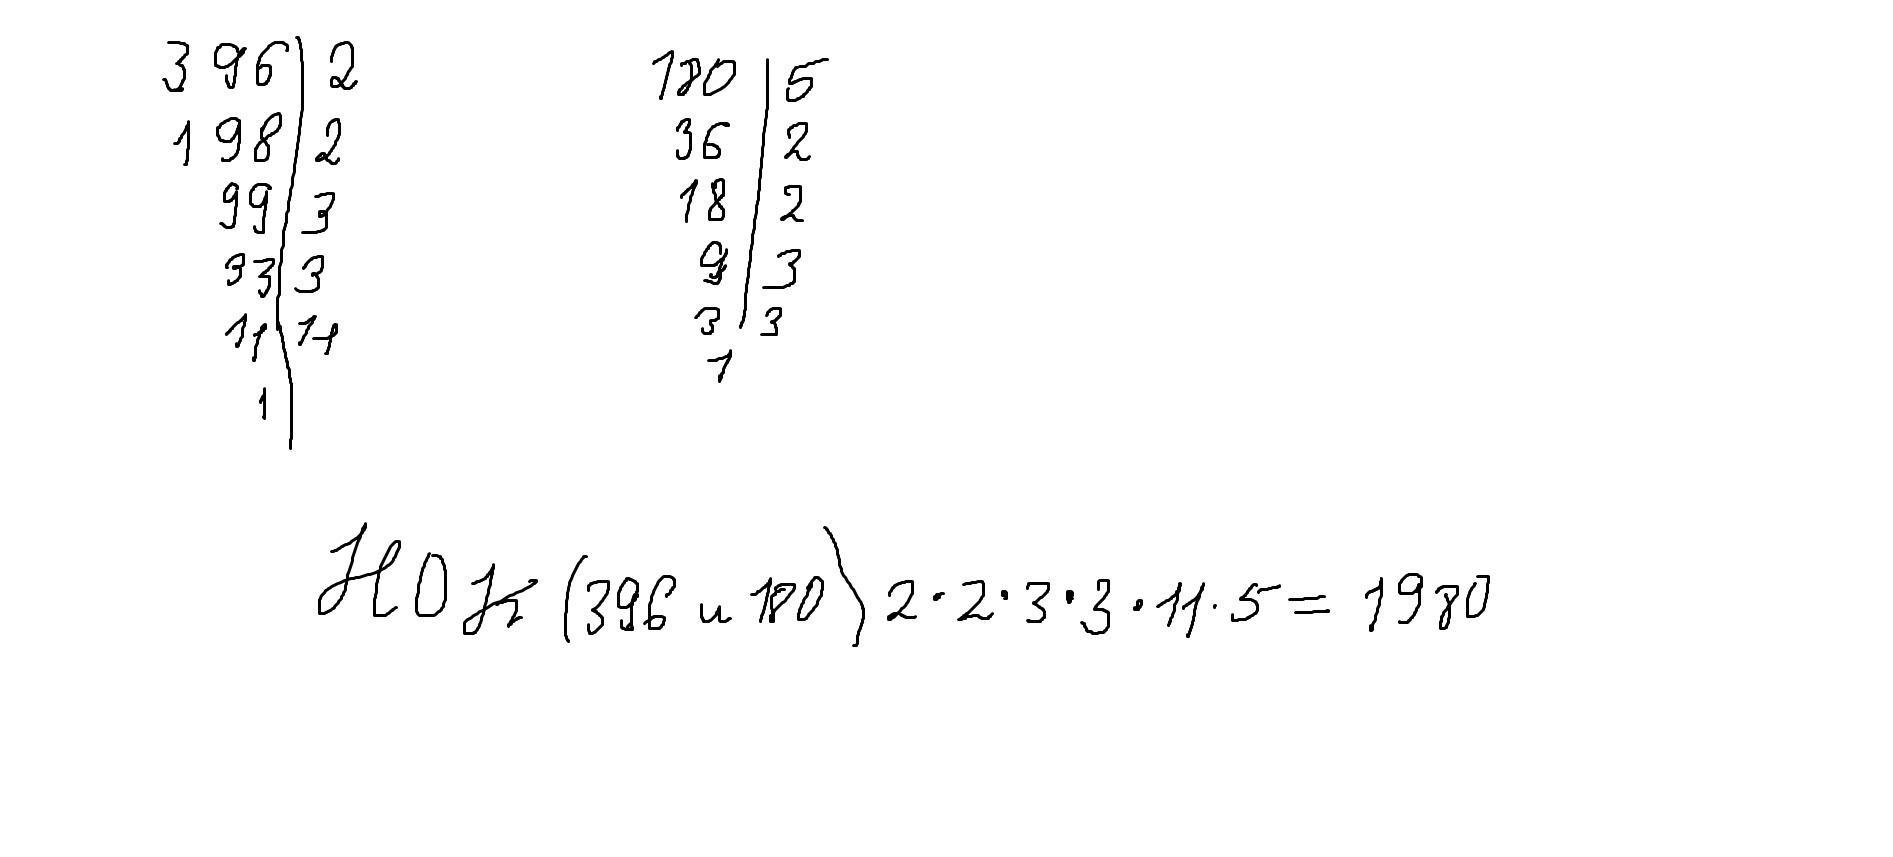 396 | 2
198 | 2
99 | 3
33 | 3
11 | 11
1 |
180 | 5
36 | 2
18 | 2
9 | 3
3 | 3
1
НОК (396 и 180) 2·2·3·3·11·5 = 1980